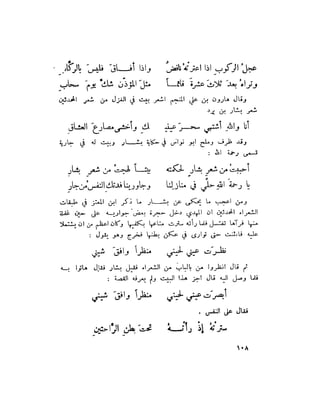 عجلُ الركوبِ اذا اعترتْه نافضٌ واذا أفـاقَ فليسَ بالركّابِ
وتراه بعدَ ثلاثَ عشرةَ قائمـاً مثلَ المؤذّنِ شكّ يومَ سحابِ
وقال هارون بن علي المنجم اشعر بيت في الغزل من شعر المحدثين
شعر بشار بن برد
أنا واللهِ أشتهي سحـرَ عينيـ ـكِ وأخشى مصارعَ العشّاقِ
وقد ظرف وملح ابو نواس في حكاية بشـار وبيت له في جارية
تسمى رحمة الله :
أحببتُ من شعرِ بشارٍ لحبّكمُ بيتـاً لهجتُ بهِ من شعرِ بشّارِ
يا رحمةَ اللهِ حلّي في منازلِنا وجاورينا فدتكِ النفسُ من جارِ
ومن اعجب ما يحكى عن بشـار ما ذكر ابن المعتز في طبقات
الشعراء المحدثين ان المهدي دخل حجرة بعض جواريـه على حين غفلة
منها فرآها تغتسل فلما رأته سترت متاعها بكفيها وكان اعظم من ان يشتملا
عليه فانثنت حتى توارى في عكن بطنها فخرج وهو يقول :
نظـرتْ عيني لحيني منظراً وافقَ شيني
ثم قال انظروا من بالباب من الشعراء فقيل بشار فقال هاتوا بـه
فلما وصل اليه قال اجز هذا البيت ولم يعرفه القصة :
أبصرتْ عيني لحيني منظراً وافقَ شيني
فقال على النفس .
سترتْهُ إذْ رأتْـهُ تحتَ بطنِ الراحتينِ
١٠٨